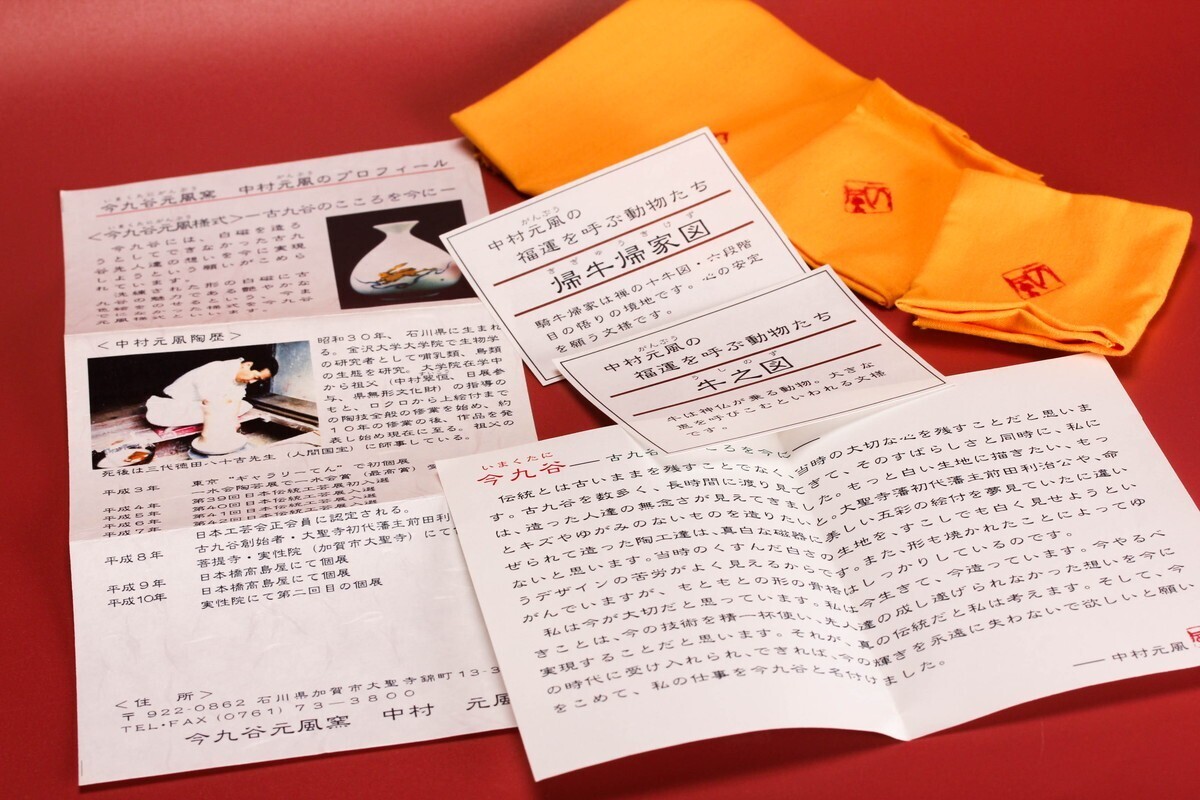 いまくたにがんぷう　がんぷう
今九谷元風窯　中村元風のプロフィール
いまくたにがんぷう
＜今九谷元風様式＞―古九谷のこころを今に―
今九谷には、白磁を造る
うとしてできなかった古九
谷先人達の想いを今に実現
しようという願いがこめら
れています。
洗練された形の白磁に古
九谷の魅力である艶やかな
元風様式といいます。
＜中村元風陶歴＞
昭和３０年、石川県に生まれ
る。金沢大学大学院で生物学
の研究者として哺乳類、鳥類
の生態を研究。大学院在学中
から祖父（中村翠恒、日展参
与、県無形文化財）の指導の
もと、ロクロから上絵付まで
の陶技全般の修業を始め、約
１０年の修業の後、作品を発
表し始め現在に至る。祖父の
死後は三代徳田八十吉先生（人間国宝）に師事している。
平成３年　東京“ギャラリーてん”で初個展
一水会陶芸展で一水会賞（最高賞）受
平成４年　第39回日本伝統工芸展初入選
平成５年　第40回日本伝統工芸展入選
平成６年　第41回日本伝統工芸展入選
平成７年　第42回日本伝統工芸展入選
日本工芸会正会員に認定される。
平成８年　古九谷創始者・大聖寺初代藩主前田利
菩提寺・実性院（加賀市大聖寺）にて
日本橋高島屋にて個展
平成９年　日本橋高島屋にて個展
平成10年　実性院にて第二回目の個展
＜住　所＞
〒922-0862 石川県加賀市大聖寺錦町13-3
TEL・FAX（0761）73―3800
今九谷元風窯　中村　元風
がんぷう
中村元風の
福運を呼ぶ動物たち
きぎゅうきけず
帰牛帰家図
騎牛帰家は禅の十牛図・六段階
目の悟りの境地です。心の安定
を願う文様です。
がんぷう
中村元風の
福運を呼ぶ動物たち
うしのず
牛之図
牛は神仏が乗る動物。大きな
恵を呼びこむといわれる文様
です。
いまくたに
今九谷―古九谷のこころを今に
伝統とは古いままを残すことでなく、当時の大切な心を残すことだと思いま
す。古九谷を数多く、長時間に渡り見てきて、そのすばらしさと同時に、私に
は、造った人達の無念さが見えてきました。もっと白い生地に描きたい、もっ
とキズやゆがみのないものを造りたいと。大聖寺藩初代藩主前田利治公や、命
ぜられて造った陶工達は、真白な磁器に美しい五彩の絵付を夢見ていたに違い
ないと思います。当時のくすんだ白さの生地を、すこしでも白く見せようとい
うデザインの苦労がよく見えるからです。また、形も焼かれたことによってゆ
がんでいますが、もともとの形の骨格はしっかりしているのです。
私は今が大切だと思っています。私は今生きて、今造っています。今やるべ
きことは、今の技術を精一杯使い、先人達の成し遂げられなかった想いを今に
実現することだと思います。それが、真の伝統だと私は考えます。そして、今
の時代に受け入れられ、できれば、今の輝きを永遠に失わないで欲しいと願い
をこめて、私の仕事を今九谷と名付けました。
――中村元風